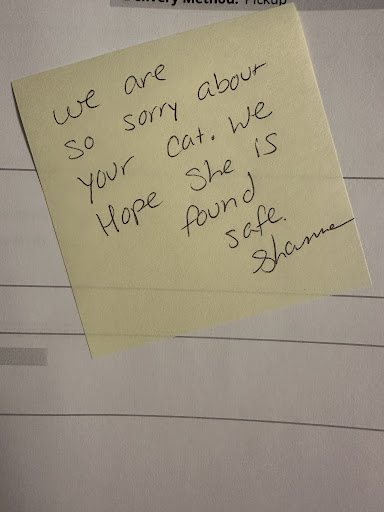 Delivery Method: Pickup
we are
so sorry about
your cat. We
Hope She is
found
safe.